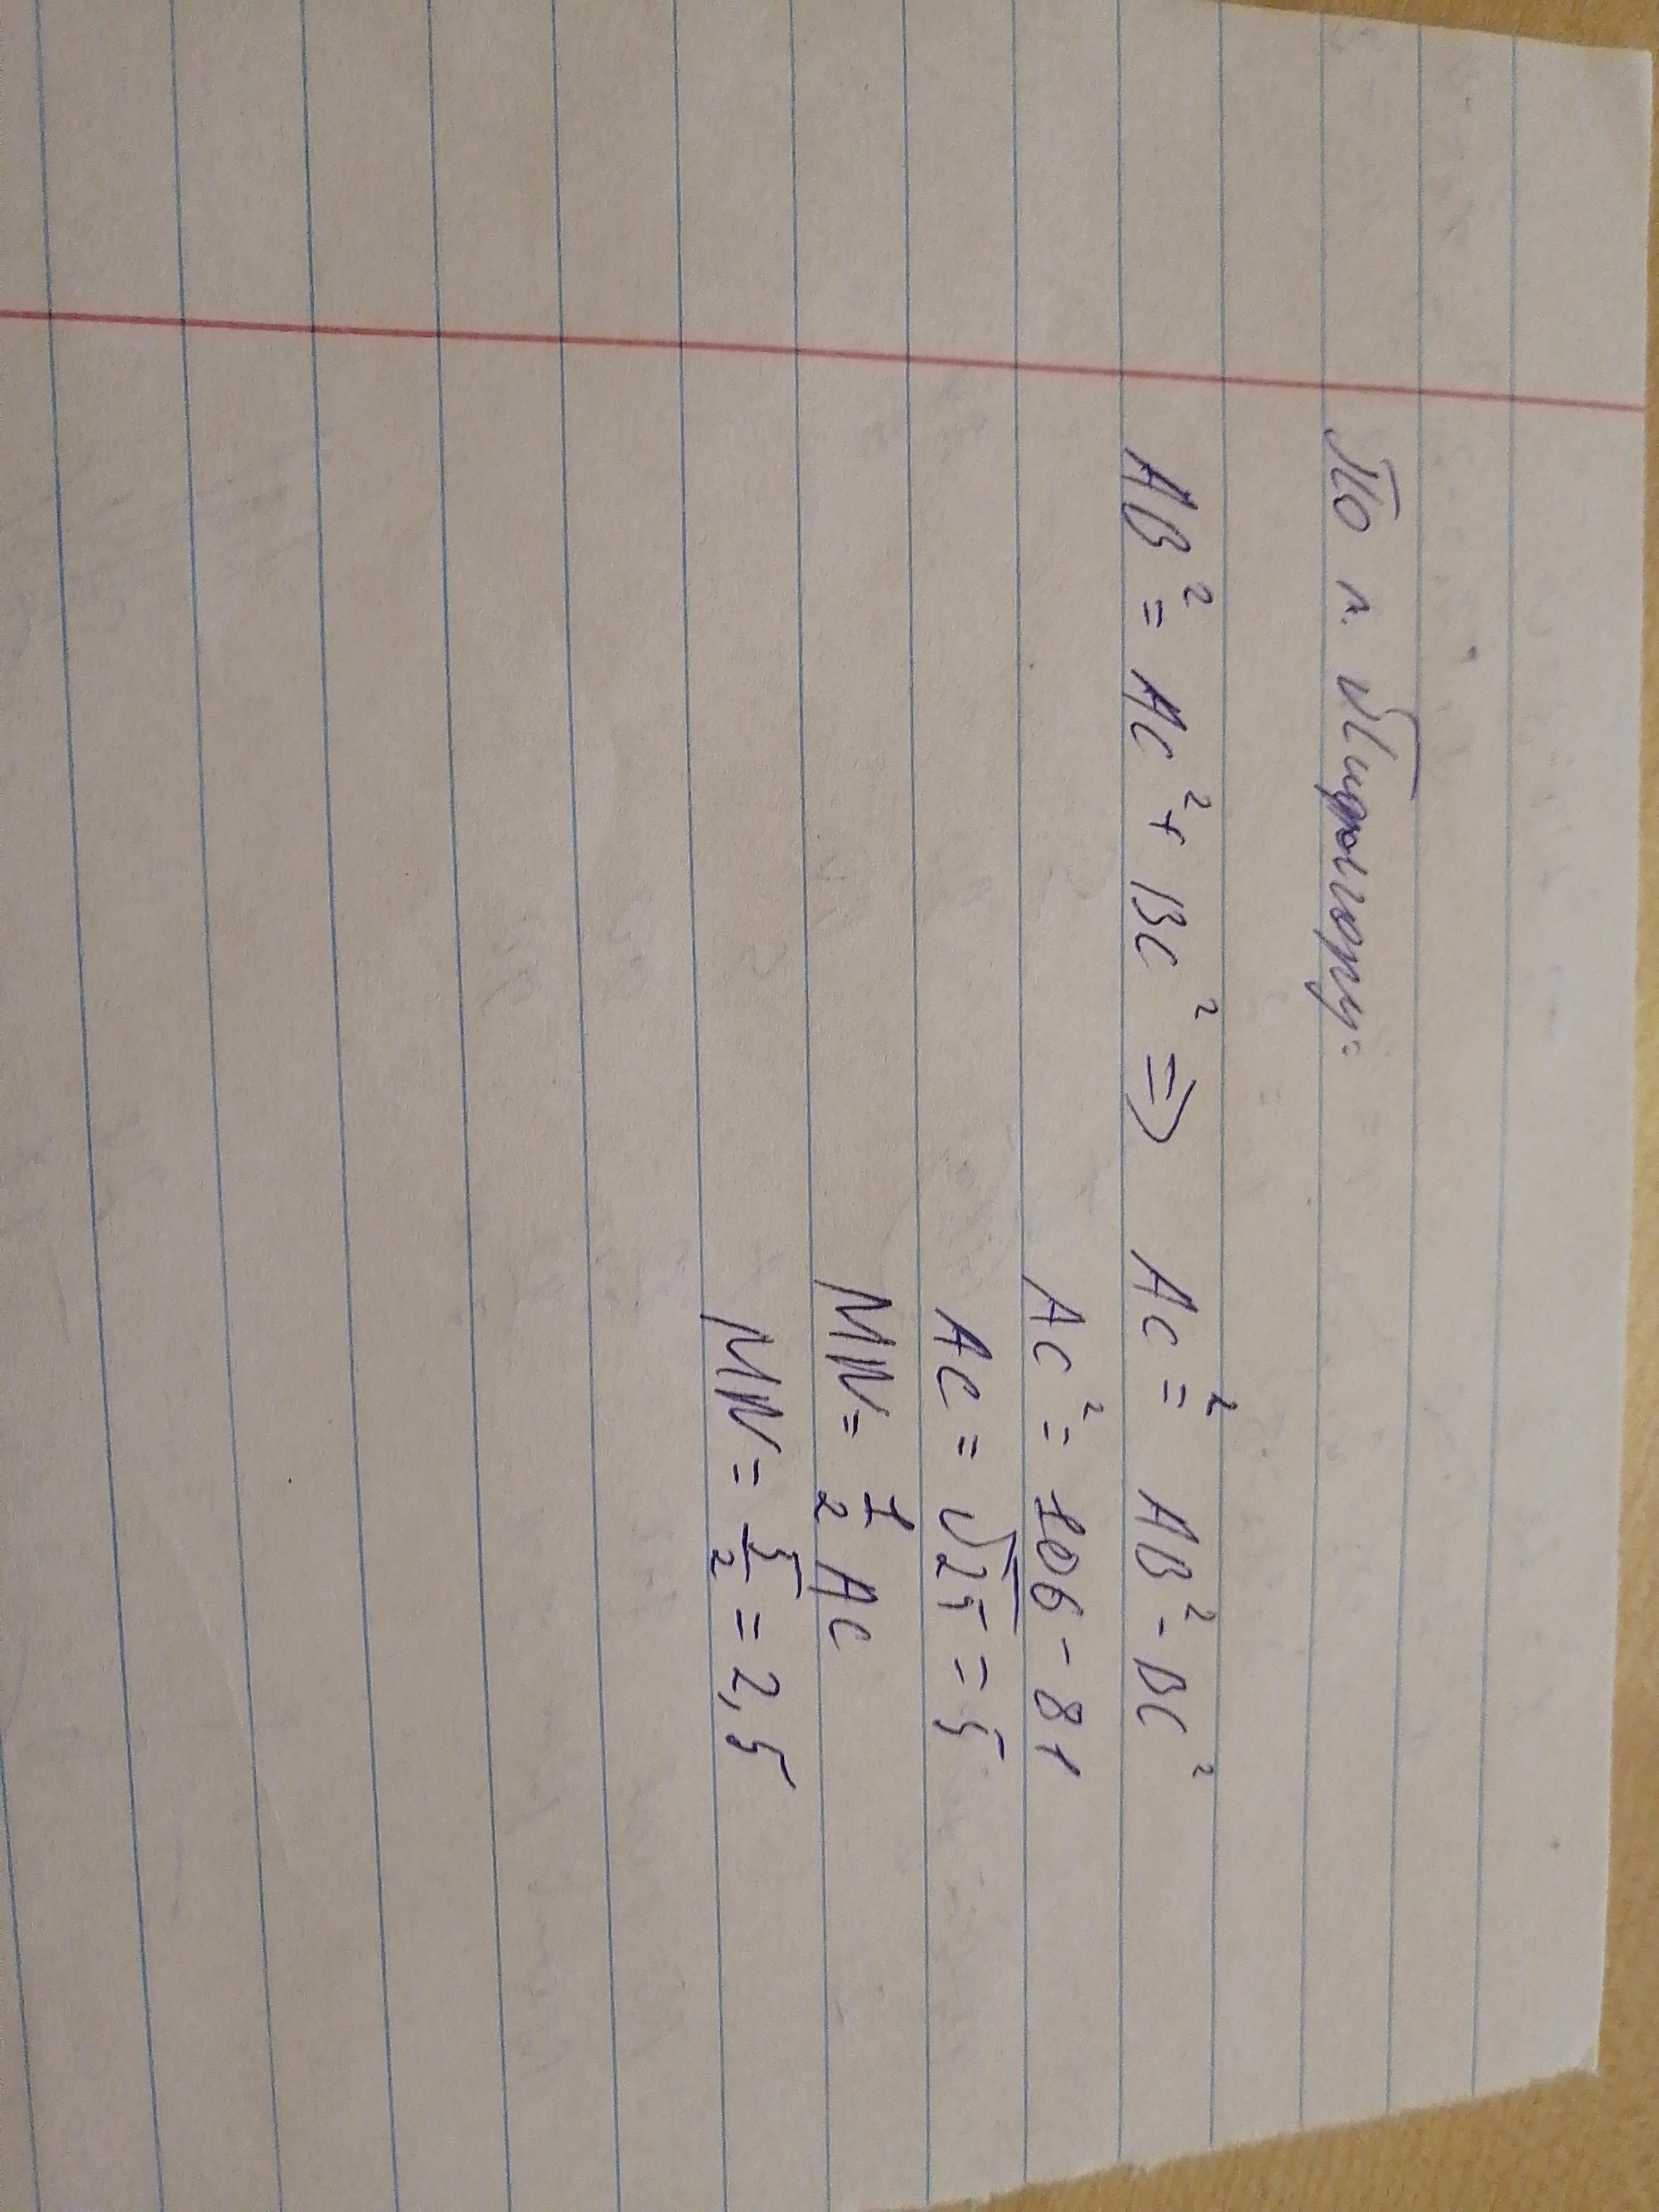 По т. Пифагору:
AB² = AC² + BC² => AC² = AB² - BC²
AC² = 106 - 81
AC = √25 = 5
MN = 1/2 AC
MN = 5/2 = 2,5